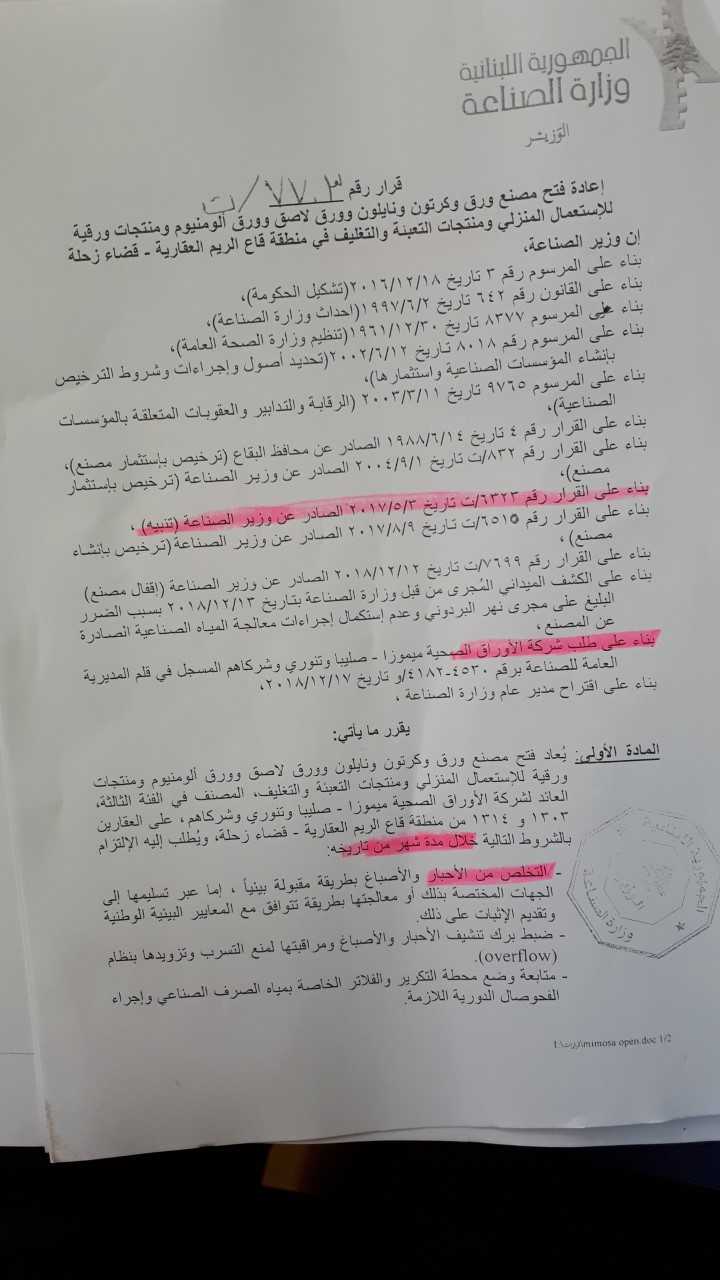 الجمهورية اللبنانية
وزارة الصناعة
الوزير
قرار رقم ٧٧٠٣/ت
إعادة فتح مصنع ورق وكرتون ونايلون وورق لاصق وورق ألومنيوم ومنتجات ورقية
للإستعمال المنزلي ومنتجات التعبئة والتغليف في منطقة قاع الريم العقارية - قضاء زحلة
إن وزير الصناعة،
بناء على المرسوم رقم ٣ تاريخ ٢٠١٦/١٢/١٨(تشكيل الحكومة)،
بناء على القانون رقم ٦٤٢ تاريخ ١٩٩٧/٦/٢(احداث وزارة الصناعة)،
بناء على المرسوم ٨٣٧٧ تاريخ ١٩٦١/١٢/٣٠(تنظيم وزارة الصحة العامة)،
بناء على المرسوم رقم ٨٠١٨ تاريخ ٢٠٠٢/٦/١٢(تحديد أصول وإجراءات وشروط الترخيص
بإنشاء المؤسسات الصناعية واستثمارها)،
بناء على المرسوم ٩٧٦٥ تاريخ ٢٠٠٣/٣/١١ (الرقابة والتدابير والعقوبات المتعلقة بالمؤسسات
الصناعية)،
بناء على القرار رقم ٤ تاريخ ١٩٨٨/٦/١٤ الصادر عن محافظ البقاع (ترخيص بإستثمار مصنع)،
بناء على القرار رقم ٨٣٢/ت تاريخ ٢٠٠٤/٩/١ الصادر عن وزير الصناعة (ترخيص بإستثمار
مصنع)،
بناء على القرار رقم ٦٣٢٣/ت تاريخ ٢٠١٧/٥/٣ الصادر عن وزير الصناعة (تنبيه) ،
بناء على القرار رقم ٦٥١٥/ت تاريخ ٢٠١٧/٨/٩ الصادر عن وزير الصناعة (ترخيص بإنشاء
مصنع) ،
بناء على القرار رقم ٧٦٩٩/ت تاريخ ٢٠١٨/١٢/١٢ الصادر عن وزير الصناعة (إقفال مصنع)
بناء على الكشف الميداني المُجرى من قبل وزارة الصناعة بتاريخ ٢٠١٨/١٢/١٣ بسبب الضرر
البليغ على مجرى نهر البردوني وعدم إستكمال إجراءات معالجة المياه الصناعية الصادرة
عن المصنع،
بناء على طلب شركة الأوراق الصحية ميموزا - صليبا وتنوري وشركاهم المسجل في قلم المديرية
العامة للصناعة برقم ٤٥٣٠-٤١٨٢/و تاريخ ٢٠١٨/١٢/١٧،
بناء على اقتراح مدير عام وزارة الصناعة ،
يقرر ما يأتي:
المادة الأولى: يُعاد فتح مصنع ورق وكرتون ونايلون وورق لاصق وورق ألومنيوم ومنتجات
ورقية للإستعمال المنزلي ومنتجات التعبئة والتغليف، المصنف في الفئة الثالثة،
العائد لشركة الأوراق الصحية ميموزا - صليبا وتنوري وشركاهم ، على العقارين
١٣٠٣ و ١٣١٤ من منطقة قاع الريم العقارية - قضاء زحلة، ويُطلب إليه الإلتزام
بالشروط التالية خلال مدة شهر من تاريخه:
- التخلص من الأحبار والأصباغ بطريقة مقبولة بيئياً ، إما عبر تسليمها إلى
الجهات المختصة بذلك أو معالجتها بطريقة تتوافق مع المعايير البيئية الوطنية
وتقديم الإثبات على ذلك.
- ضبط برك تنشيف الأحبار والأصباغ ومراقبتها لمنع التسرب وتزويدها بنظام
(overflow).
- متابعة وضع محطة التكرير والفلاتر الخاصة بمياه الصرف الصناعي وإجراء
الفحوصال الدورية اللازمة.
وزارة الصناعة
mimosa open.doc 1/2